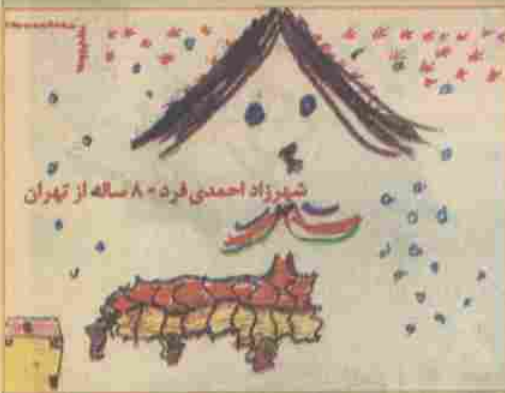 شهرزاد احمدی فرد - ۸ ساله از تهران